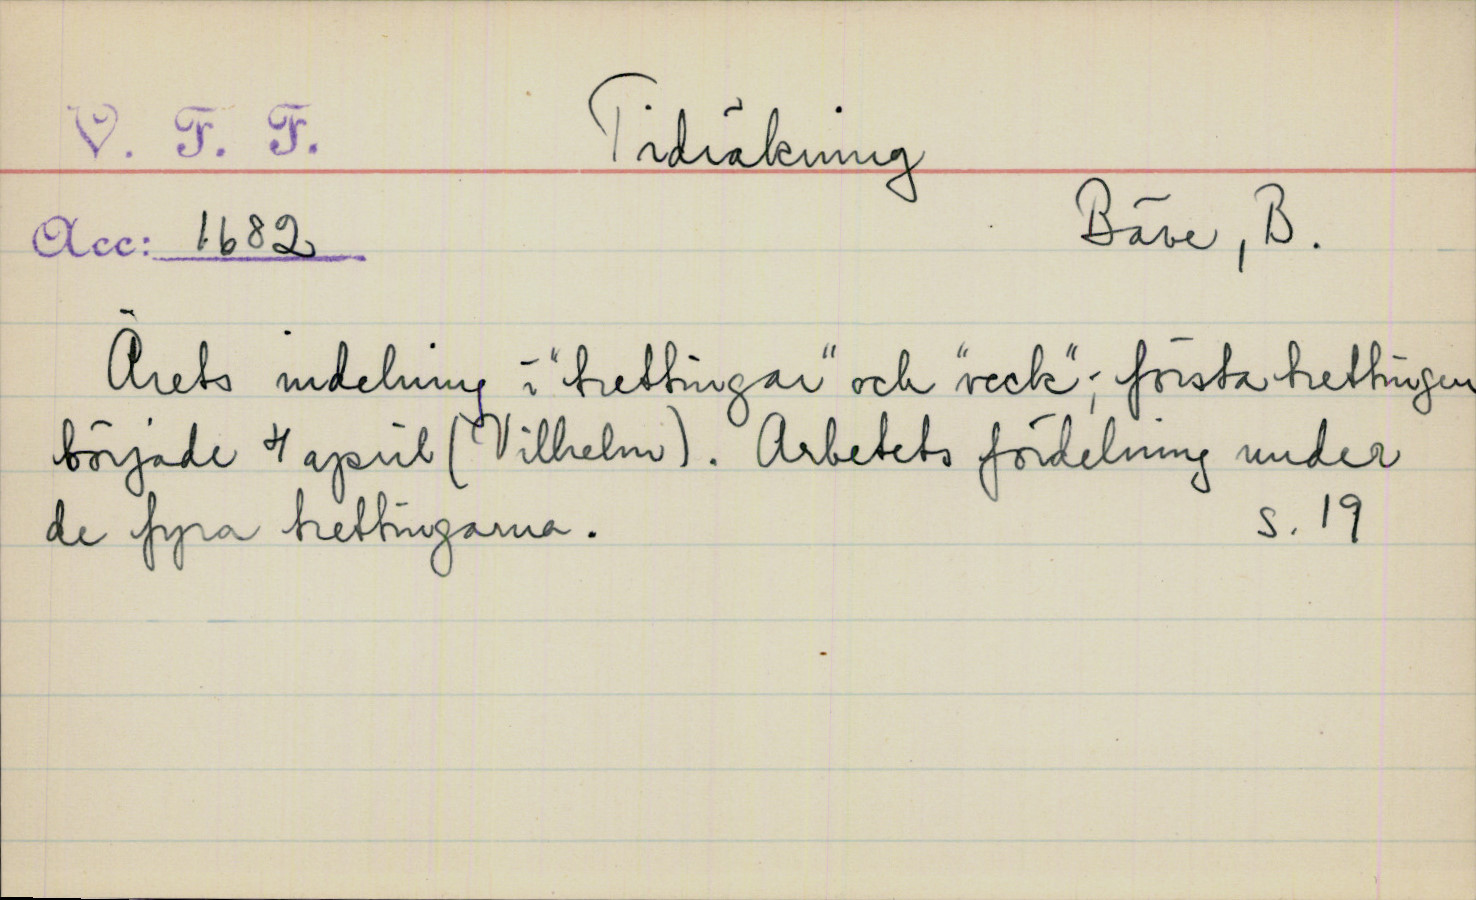 V. F. F.
Tidräkning
Acc: 1682
Bäve, B.
Årets indelning i "trettingar" och "veck"; första trettingen
började 4 april (Vilhelm). Arbetets fördelning under
de fyra trettingarna.
s. 19